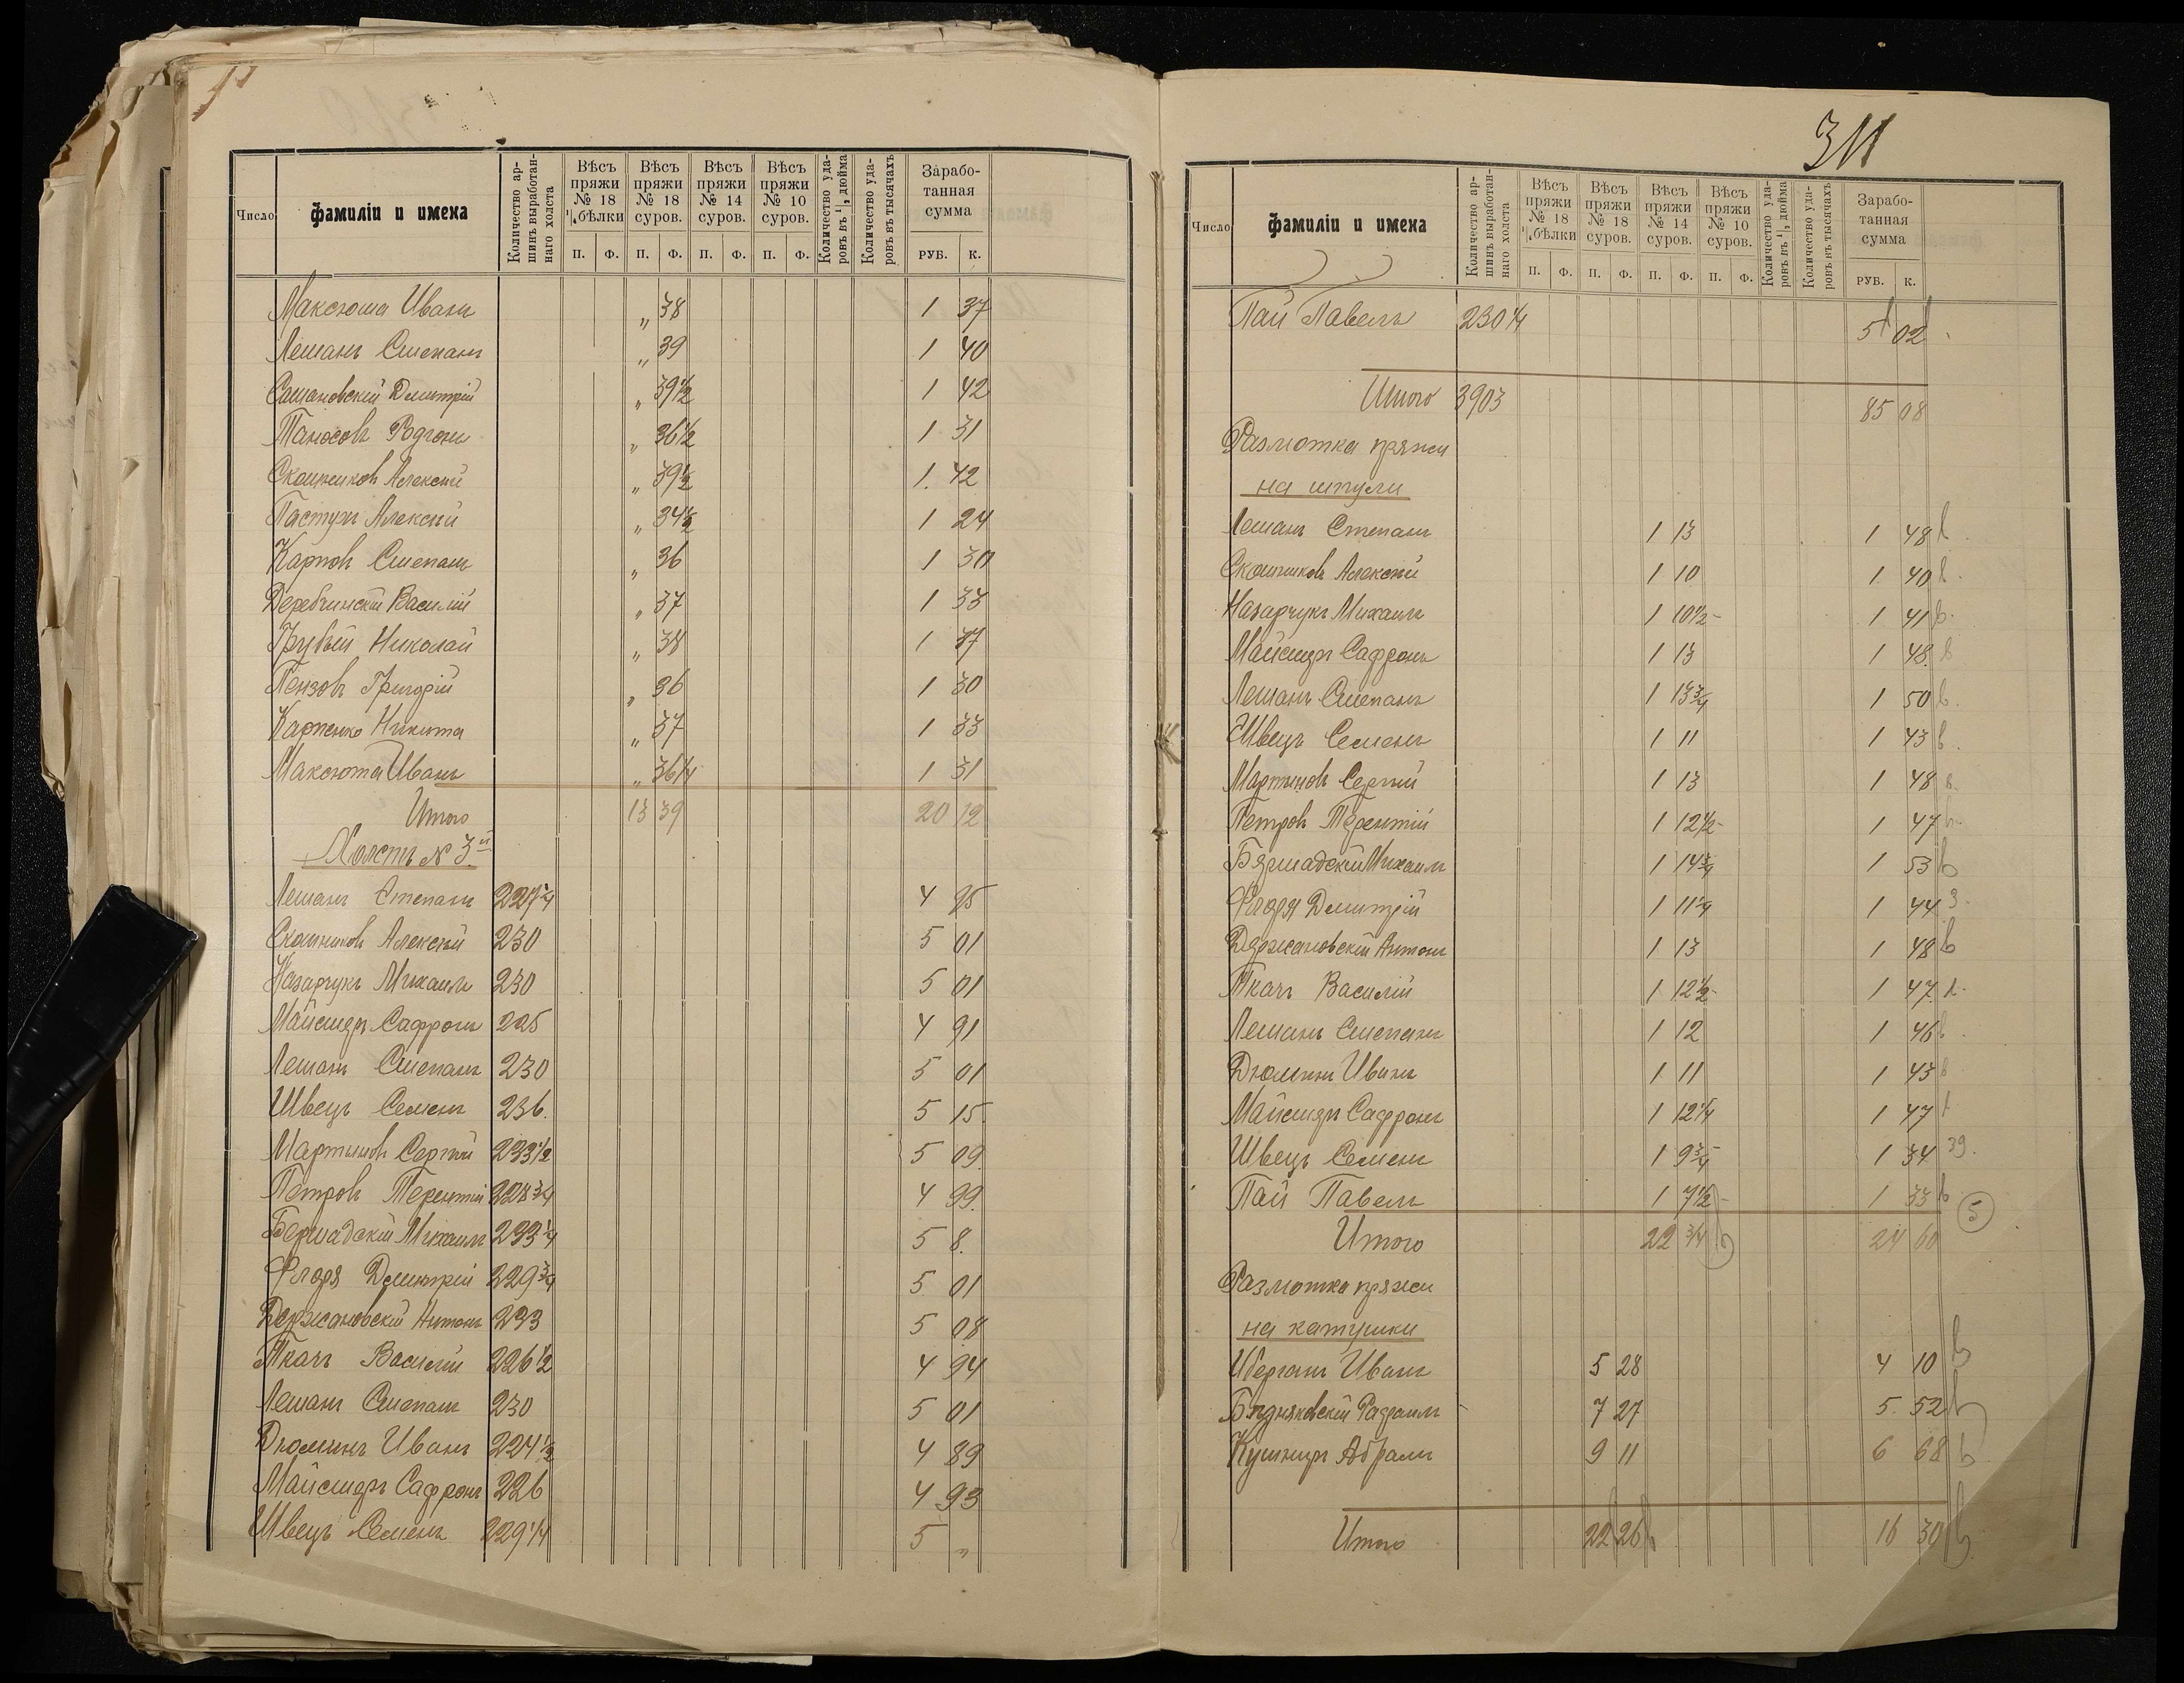 311
Число
фамиліи и имена
Количество аршинъ выработаннаго холста
Вѣсъ пряжи № 18 ¼ бѣлки
Вѣсъ пряжи № 18 суров.
Вѣсъ пряжи № 14 суров.
Вѣсъ пряжи № 10 суров.
Количество ударовъ въ ¼ дюйма
Количество ударовъ въ тысячахъ
Заработанная сумма
П. Ф. П. Ф. П. Ф. П. Ф. РУБ. К.
Максюта Иванъ „ 38 1 37
Лешанъ Степанъ „ 39 1 40
Дмитрій „ 39½ 1 42
Панюсовъ Родіонъ „ 36½ 1 31
Скотниковъ Алексѣй „ 39½ 1. 42
Пастухъ Алексѣй „ 34½ 1 24
Карповъ Степанъ „ 36 1 30
Деребчинскій Василій „ 37 1 33
Грубый Николай „ 38 1 37
Пензовъ Григорій „ 36 1 30
Карпенко Никита „ 37 1 33
Максюта Иванъ „ 36¼ 1 31
Итого 13 39 20 12
Холстъ № 3й
Лешанъ Степанъ 227¼ 4 95
Скотниковъ Алексѣй 230 5 01
Назарчукъ Михаилъ 230 5 01
Майстеръ Сафронъ 225 4 91
Лешанъ Степанъ 230 5 01
Швецъ Семенъ 236. 5 15.
Мартыновъ Сергѣй 233½ 5 09.
Петровъ Терентій 228¾ 4 99.
Бершадскій Михаилъ 233¼ 5 8.
Флоря Дмитрій 229¾ 5 01
Держановскій Антонъ 233 5 08
Ткачъ Василій 226½ 4 94
Лешанъ Степанъ 230 5 01
Дюминъ Иванъ 224½ 4 89
Майстеръ Сафронъ 226 4 93
Швецъ Семенъ 229¼ 5 „
Число
фамиліи и имена
Количество аршинъ выработаннаго холста
Вѣсъ пряжи № 18 ¼ бѣлки
Вѣсъ пряжи № 18 суров.
Вѣсъ пряжи № 14 суров.
Вѣсъ пряжи № 10 суров.
Количество ударовъ въ ¼ дюйма
Количество ударовъ въ тысячахъ
Заработанная сумма
П. Ф. П. Ф. П. Ф. П. Ф. РУБ. К.
Пай Павелъ 230¼ 5 02
Итого 3903 85 08
Размотка пряжи
на шпули
Лешанъ Степанъ 1 13 1 48
Скотниковъ Алексѣй 1 10 1 40
Назарчукъ Михаилъ 1 10½ 1 41
Майстеръ Сафронъ 1 13 1 48
Лешанъ Степанъ 1 13¾ 1 50
Швецъ Семенъ 1 11 1 43
Мартыновъ Сергѣй 1 13 1 48
Петровъ Терентій 1 12½ 1 47
Бершадскій Михаилъ 1 14¾ 1 53
Флоря Дмитрій 1 11¼ 1 44
Держановскій Антонъ 1 13 1 48
Ткачъ Василій 1 12½ 1 47
Лешанъ Степанъ 1 12 1 46
Дюминъ Иванъ 1 11 1 43
Майстеръ Сафронъ 1 12¼ 1 47
Швецъ Семенъ 1 9¾ 1 34 39.
Пай Павелъ 1 7½ 1 33
5
Итого 22 ¾ 24 60
Размотка пряжи
на катушки
Иванъ 5 28 4 10
7 27 5. 52
Кушниръ Абрамъ 9 11 6 68
Итого 22 26 16 30